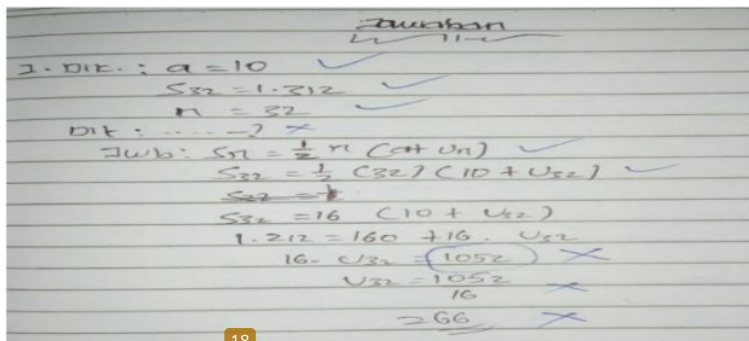 Jawaban
1. Dik. : a = 10
S32 = 1.312
n = 32
Dit : ..... -?
Jwb : Sn = 1/2 n (a + Un)
S32 = 1/2 (32) (10 + U32)
S32 = 16 (10 + U32)
1.212 = 160 + 16 . U32
16 - U32 = 1052
U32 = 1052
16
= 66
18